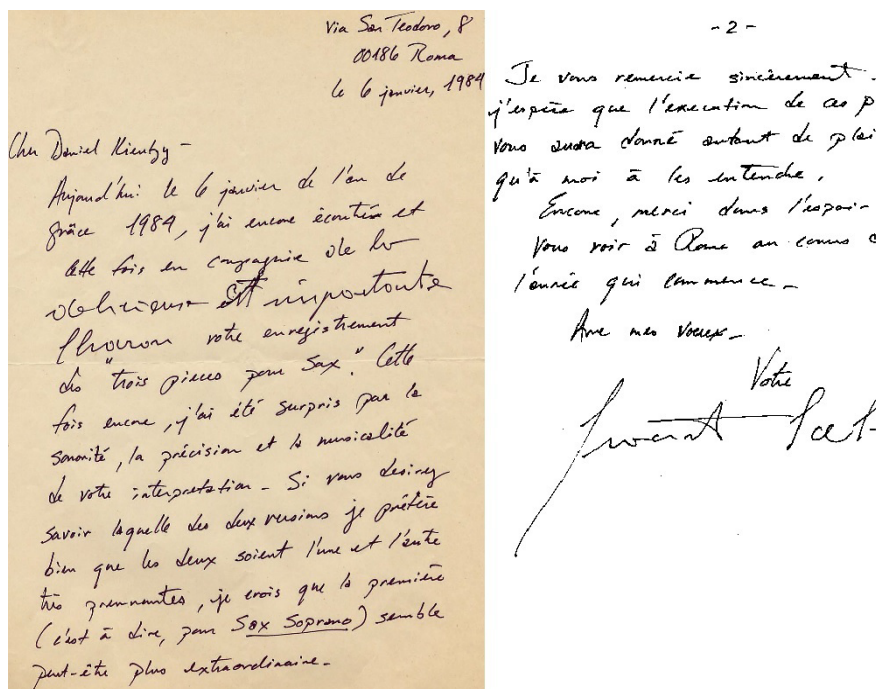 Via San Teodoro, 8
00186 Roma
le 6 janvier, 1984
Cher Daniel Kientzy -
Aujourd'hui le 6 janvier de l'an de
grâce 1984, j'ai encore écouté et
cette fois en compagnie de la
délicieuse et importante
Sharon votre enregistrement
des "trois pièces pour Sax". Cette
fois encore, j'ai été surpris par la
sonorité, la précision et la musicalité
de votre interpretation - Si vous desirez
savoir laquelle des deux versions je préfère
bien que les deux soient l'une et l'autre
très prennantes, je crois que la première
(c'est à dire, pour Sax Soprano) semble
peut-être plus extraordinaire -
- 2 -
Je vous remercie sincèrement.
j'espère que l'execution de ces p
vous aura donné autant de plai
qu'à moi à les entendre.
Encore, merci dans l'espoir
vous voir à Rome au cours
l'année qui commence -
Avec mes voeux -
Votre